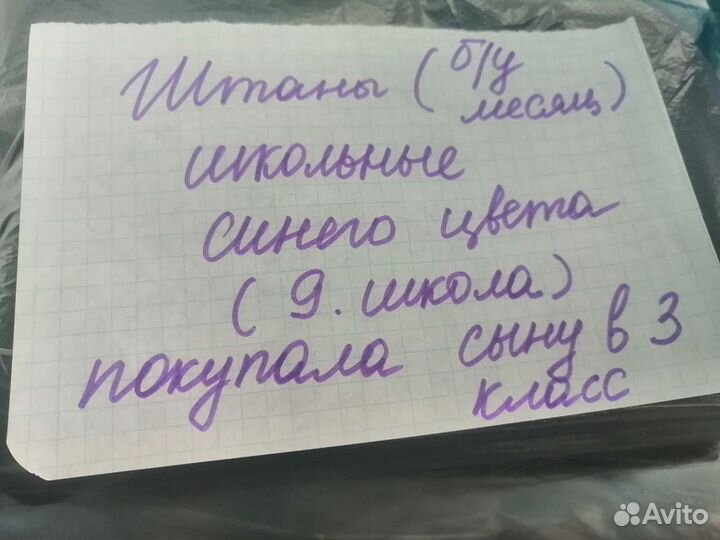 Штаны (б/у месяц)
школьные
синего цвета
(9. школа)
покупала сыну в 3
класс
Avito